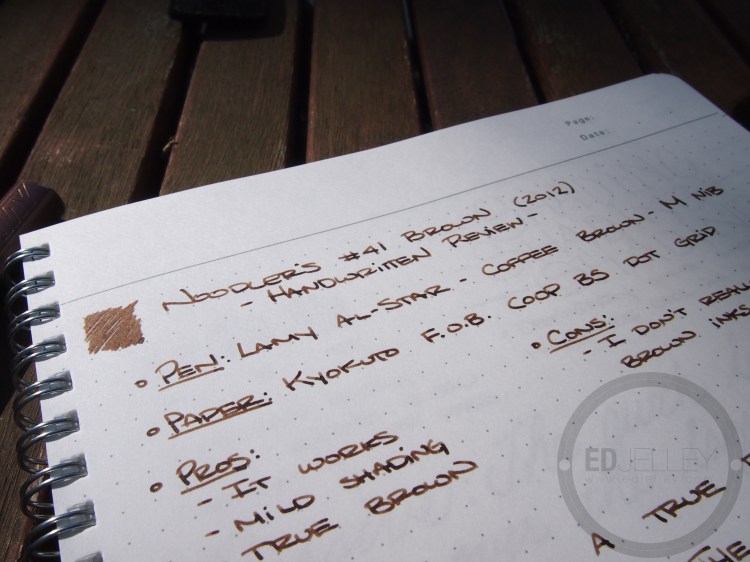 Page:
Date:
NOODLER'S #41 BROWN (2012)
- HANDWRITTEN REVIEW -
• PEN: LAMY AL-STAR - COFFEE BROWN - M NIB
• PAPER: KYOKUTO F.O.B. COOP B5 DOT GRID
• PROS:
- IT WORKS
- MILD SHADING
TRUE BROWN
• CONS:
- I DON'T REALL
BROWN INKS
A TRUE
THE
EDJELLEY